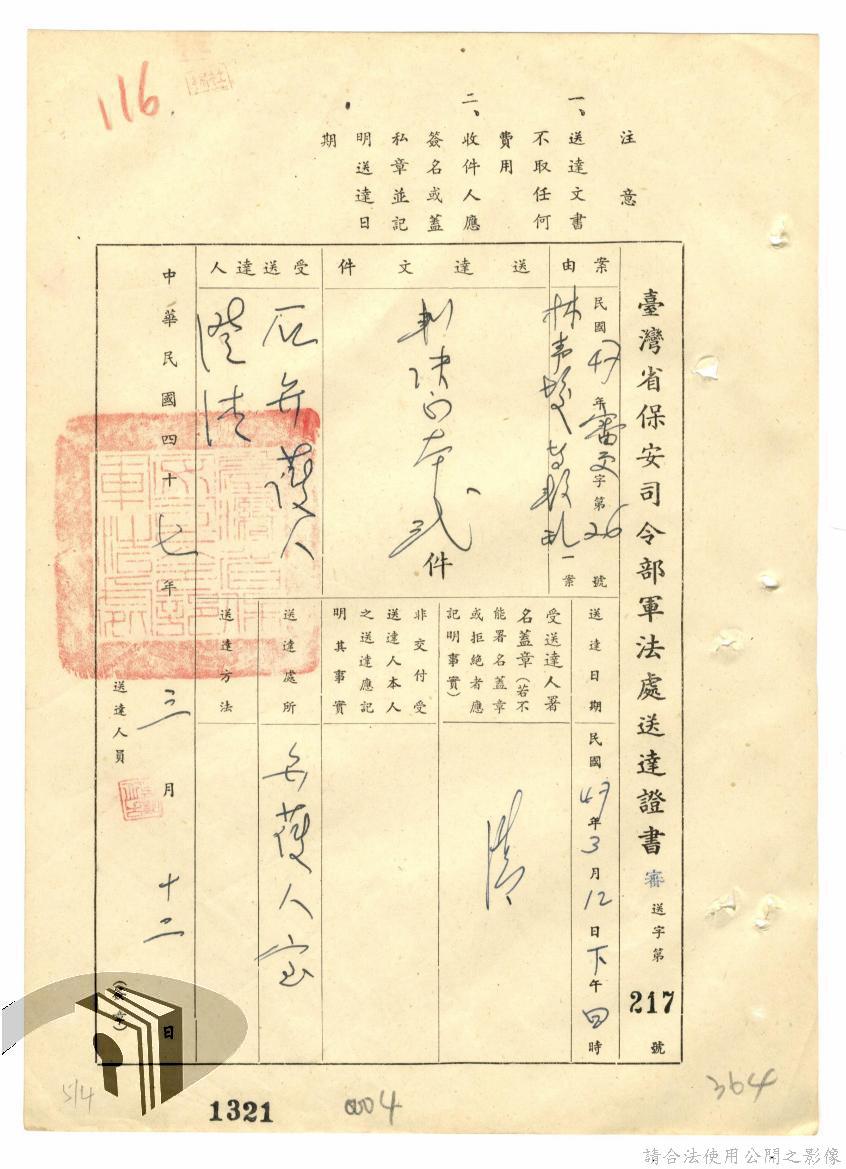 116
注意
一、送達文書
不取任何
費用
二、收件人應
簽名或蓋
私章並記
明送達日
期
臺灣省保安司令部軍法處送達證書 審送字第217號
案由
民國47年審更字第26號
林 等叛亂一案
送達文件
判決正本弍件
受送達人
辯護人
送達日期
民國47年3月12日下午四時
受送達人署
名蓋章(若不
能署名蓋章
或拒絕者應
記明事實)
非交付受
送達人本人
之送達應記
明其事實
送達處所
辯護人室
送達方法
中華民國四十七年三月十二日
送達人員
(簽章)
5/4
1321
004
364
請合法使用公開之影像